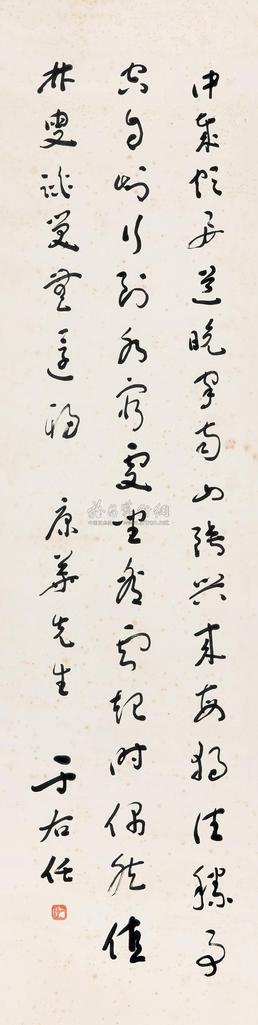 中歲頗好道晚家南山陲興來每獨往勝事
空自知行到水窮處坐看雲起時偶然值
林叟談笑無還期 康華先生 于右任